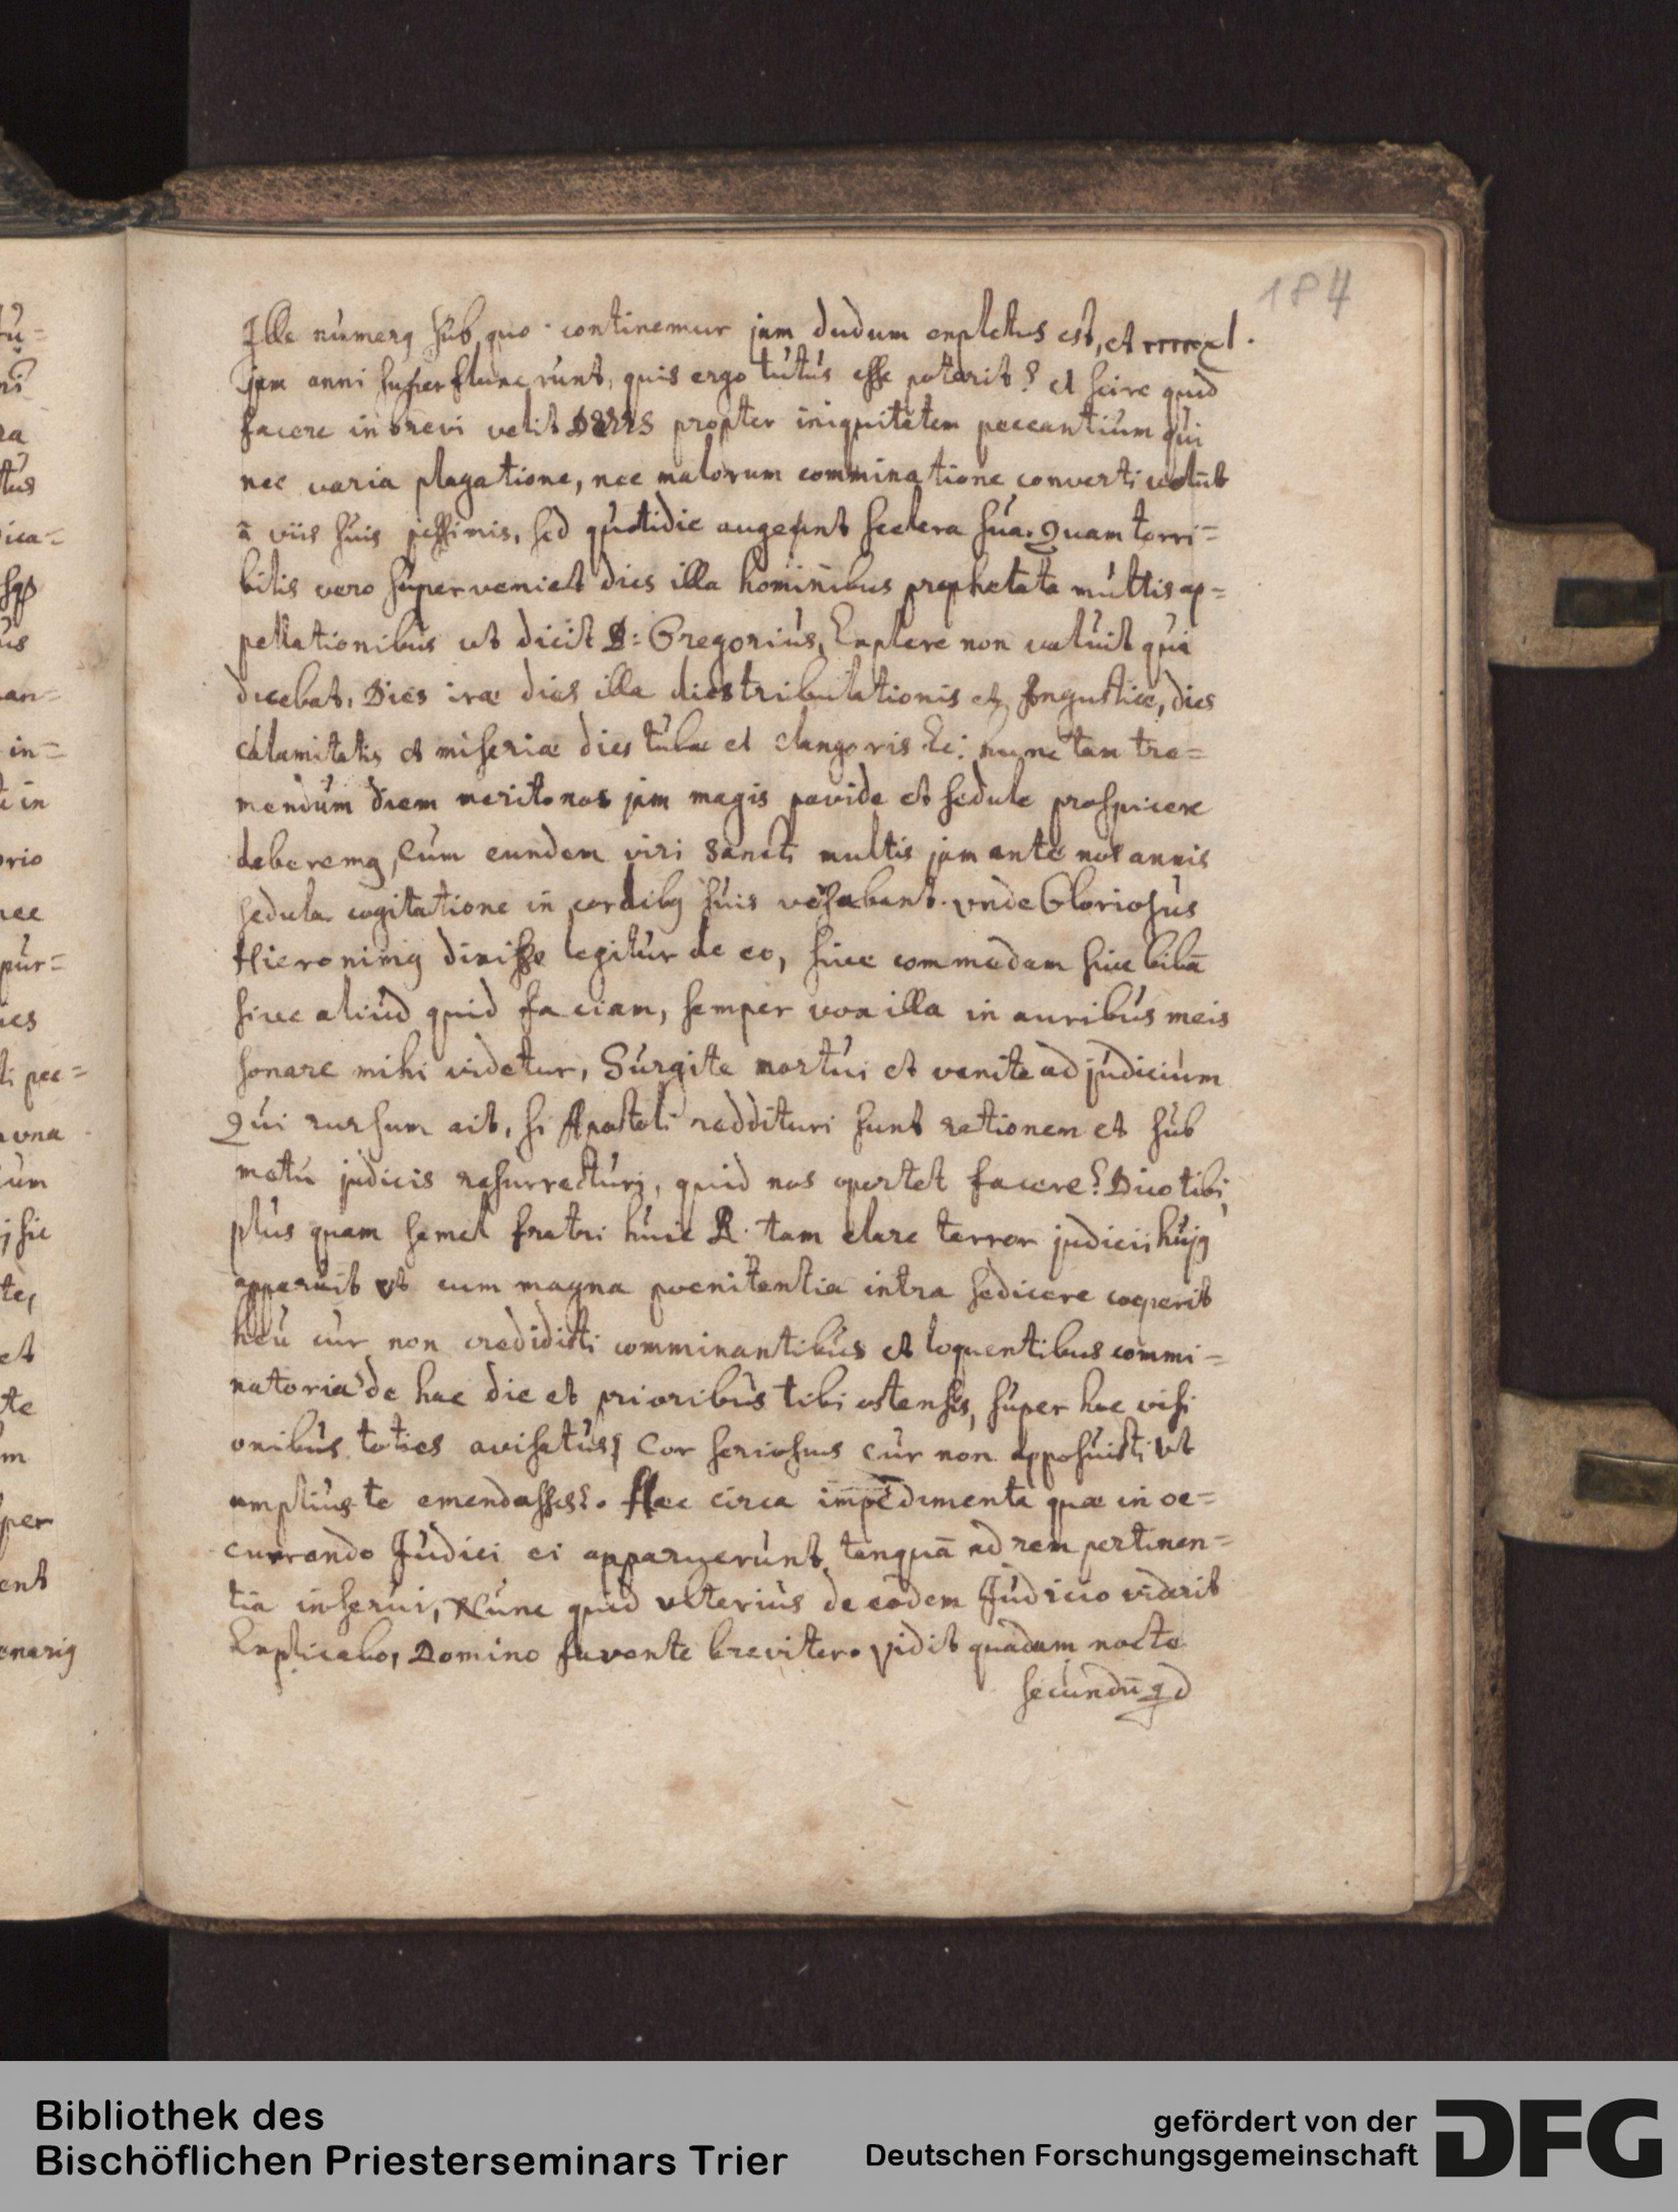 184
Ille numerꝰ sub quo continemur jam dudum expletus est, et
jam anni superfluxerunt, quis ergo tutus esse poterit? et scire quid
facere in brevi velit DEUS propter iniquitatem peccantium qui
nec varia plagatione, nec malorum comminatione converti volūt
a viis suis pessimis, sed quotidie augeunt scelera sua. Quam terri=
bilis vero superveniet dies illa hominibus prophetata multis ap=
pellationibus ut dicit D: Gregorius, Explere non valuit qui
dicebat, Dies iræ dies illa dies tribulationis et Angustiæ, dies
calamitatis et miseriæ dies tubæ et clangoris &c: hunc tan tre=
mendum diem merito nos jam magis pavide et sedule prospicere
deberemꝰ, cum eundem viri Sancti multis jam ante nos annis
sedula cogitatione in cordibꝰ suis versabant. unde Gloriosus
Hieronimꝰ dixisse legitur de eo, sive commedam sive bibā
sive aliud quid faciam, semper vox illa in auribus meis
sonare mihi videtur, Surgite mortui et venite ad judicium
Qui rursum ait, si Apostoli reddituri sunt rationem et sub
metu judicis resurrecturi, quid nos oportet facere? Dico tibi,
plus quam semel fratri huic R. tam clare terror judicii hujꝰ
apparuit ut cum magna poenitentia intra se dicere coeperit
heu cur non credidisti comminantibus et loquentibus commi=
natoria de hac die et prioribus tibi ostensis, super hac visi
onibus toties avisatus, Cor seriosius cur non apposuisti ut
amplius te emendasses?. Hæc circa impedimenta quæ in oc=
currendo Judici ei apparuerunt tanquā ad rem pertinen=
tia inserui, Nunc quid ulterius de eodem Judicio viderit
Explicabo, Domino favente breviter. Vidit quadam nocte
secundū qd
Bibliothek des
Bischöflichen Priesterseminars Trier
gefördert von der
Deutschen Forschungsgemeinschaft
DFG